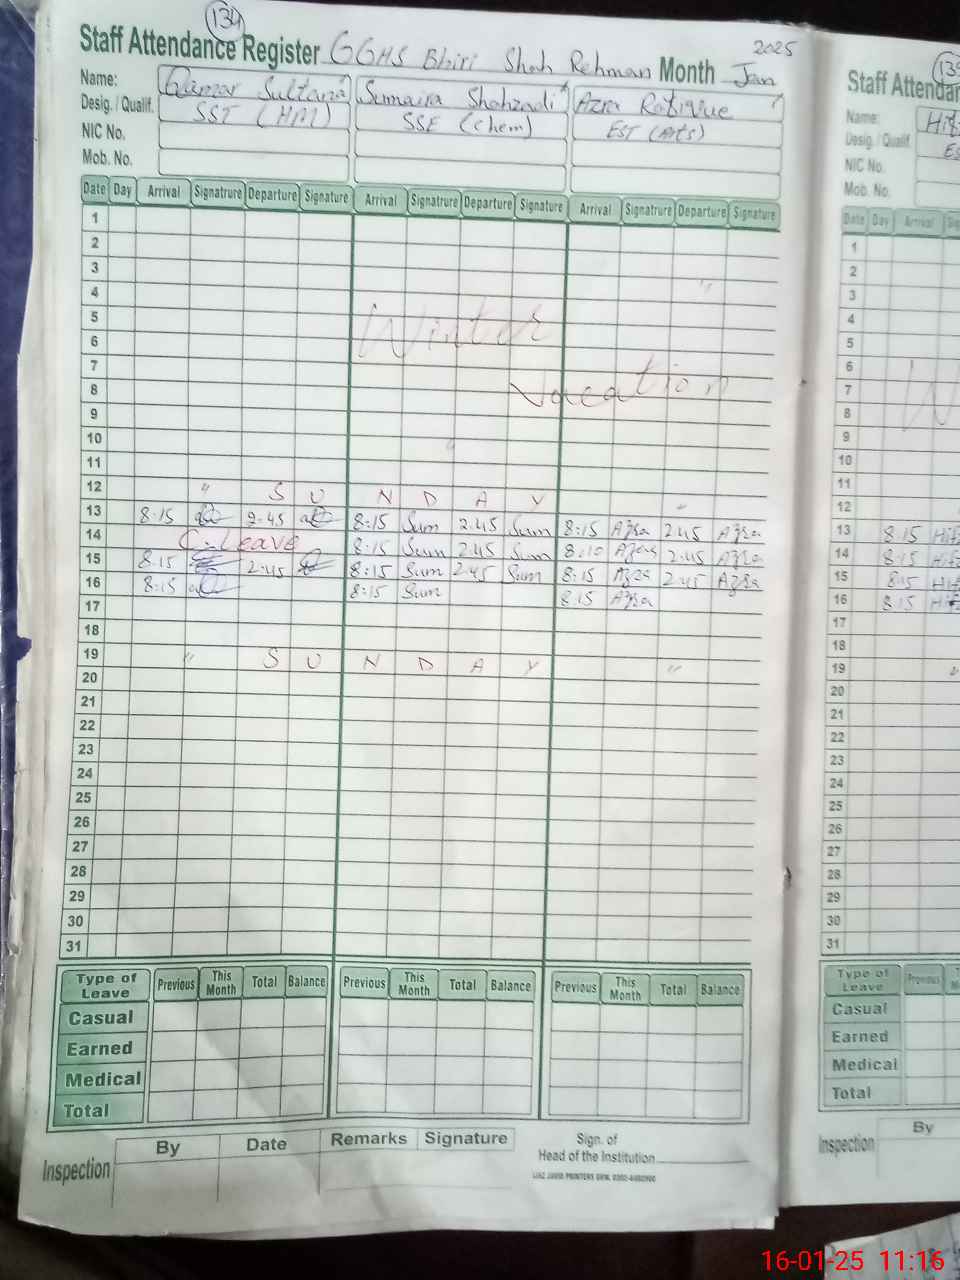 134
Staff Attendance Register GGHS Bhiri Shah Rehman Month Jan 2025
Name: Qamar Sultana Sumaira Shahzadi Azra Rafique
Desig. / Qualif. SST (HM) SSE (Chem) EST (Arts)
NIC No.
Mob. No.
Date Day Arrival Signatrure Departure Signature Arrival Signatrure Departure Signature Arrival Signatrure Departure Signature
1
2
3
4
5
Winter
6
7
Vacation
8
9
10
11
12 " S U N D A Y "
13 8:15 2:45 8:15 Sum 2:45 Sum 8:15 Azra 2:45 Azra
14 C. Leave 8:15 Sum 2:45 Sum 8:10 Azra 2:45 Azra
15 8:15 2:45 8:15 Sum 2:45 Sum 8:15 Azra 2:45 Azra
16 8:15 8:15 Sum 8:15 Azra
17
18
19 " S U N D A Y "
20
21
22
23
24
25
26
27
28
29
30
31
Type of Leave Previous This Month Total Balance Previous This Month Total Balance Previous This Month Total Balance
Casual
Earned
Medical
Total
Inspection By Date Remarks Signature Sign. of
Head of the Institution
Staff Attendan
Name:
Desig. / Qualif.
NIC No.
Mob. No.
Date Day Arrival
1
2
3
4
5
6
7
8
9
10
11
12
13 8:15
14 8:15
15 8:15
16 8:15
17
18
19
20
21
22
23
24
25
26
27
28
29
30
31
Type of Leave Previous
Casual
Earned
Medical
Total
Inspection By
16-01-25 11:16